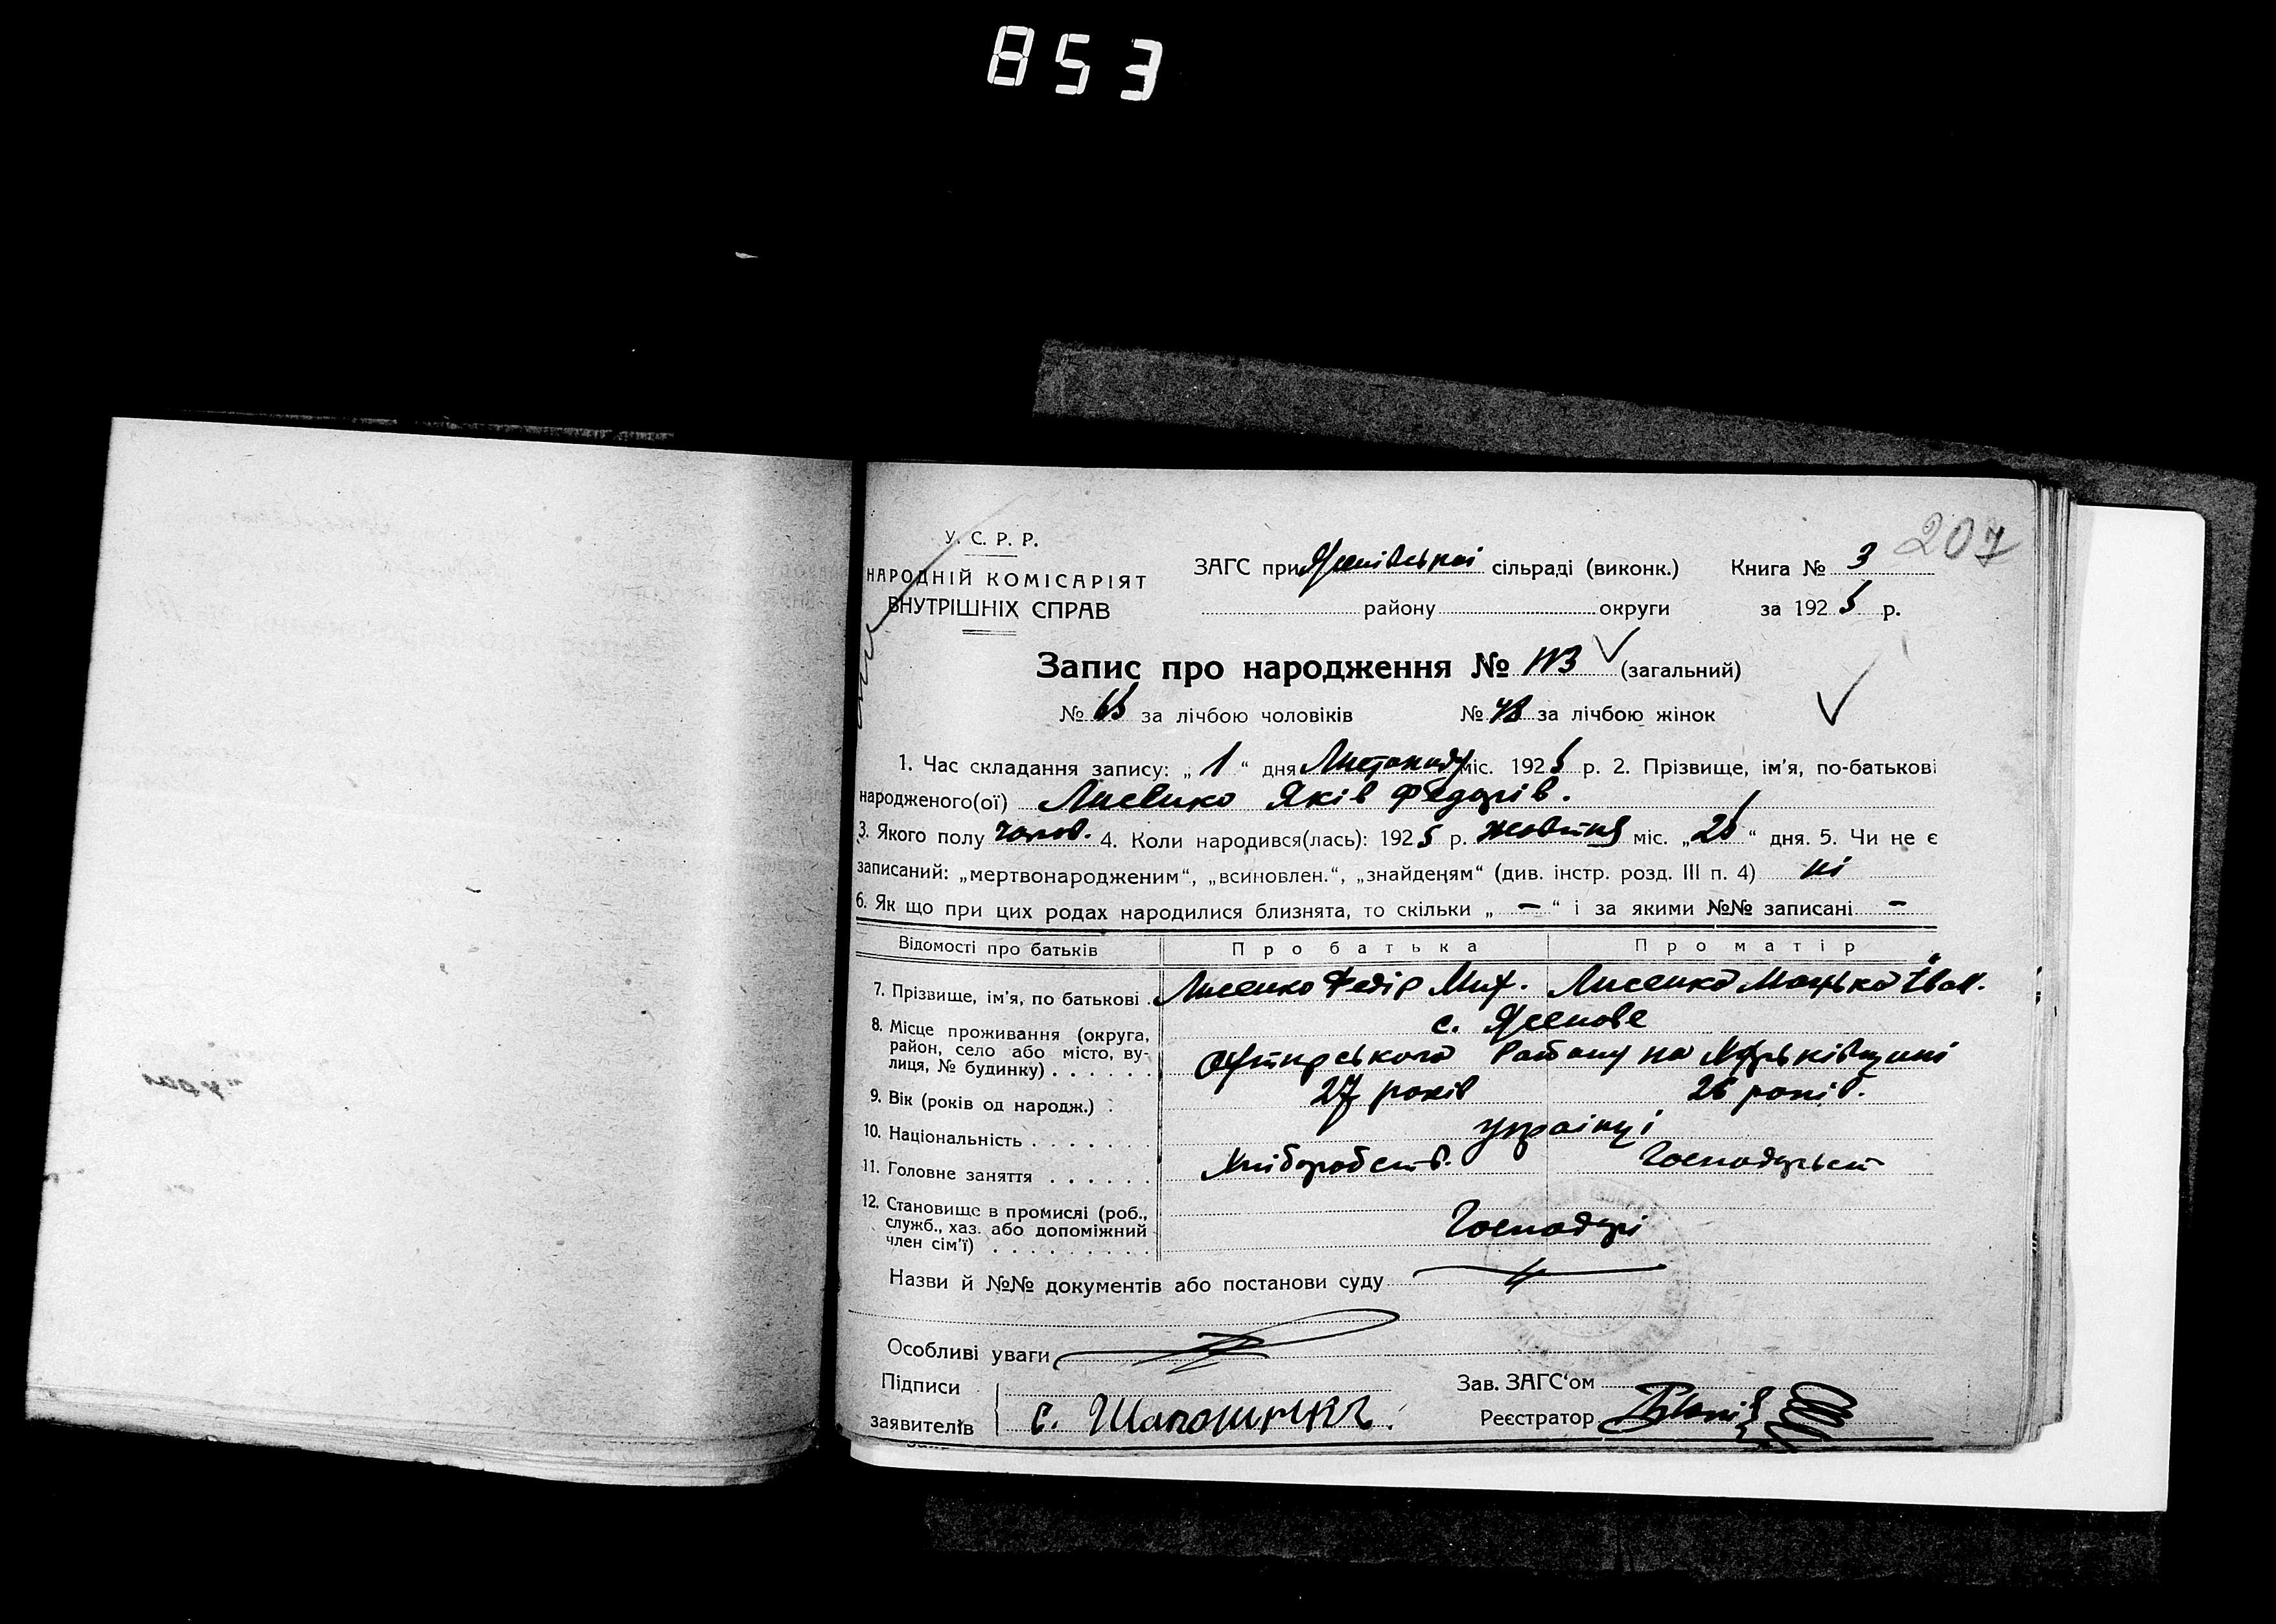 853
207
У. С. Р. Р.
НАРОДНІЙ КОМІСАРІЯТ
ВНУТРІШНІХ СПРАВ
ЗАГС при сільраді (виконк.) Книга № 3
району округи за 1925 р.
Запис про народження № 113 (загальний)
№ 65 за лічбою чоловіків № 48 за лічбою жінок
1. Час складання запису: „ 1 “ дня Листопаду міс. 1925 р. 2. Прізвище, ім'я, по-батькові
народженого(ої) Лисенко Яків Федорів.
3. Якого полу чолов. 4. Коли народився(лась): 1925 р. Жовтня міс. „25“ дня. 5. Чи не є
записаний: „мертвонародженим“, „всиновлен.“, „знайденям“ (див. інстр. розд. III п. 4) ні
6. Як що при цих родах народилися близнята, то скільки „ — “ і за якими №№ записані —
Відомості про батьків Про батька Про матір
7. Прізвище, ім'я, по батькові Лисенко Федір Мих. Лисенко Іван.
8. Місце проживання (округа,
район, село або місто, ву-
лиця, № будинку) . . . . . с. Ясенове
Охтирського Району на Харьківщині
9. Вік (років од народж.) . 27 років 26 років.
10. Національність . . . . . . . українці
11. Головне заняття . . . . . . Хліборобств. Господарст
12. Становище в промислі (роб.,
служб., хаз. або допоміжний
член сім'ї) . . . . . . . . . Господарі
Назви й №№ документів або постанови суду
Особливі уваги
Підписи Зав. ЗАГС'ом
заявителів С. Шапошник Реєстратор